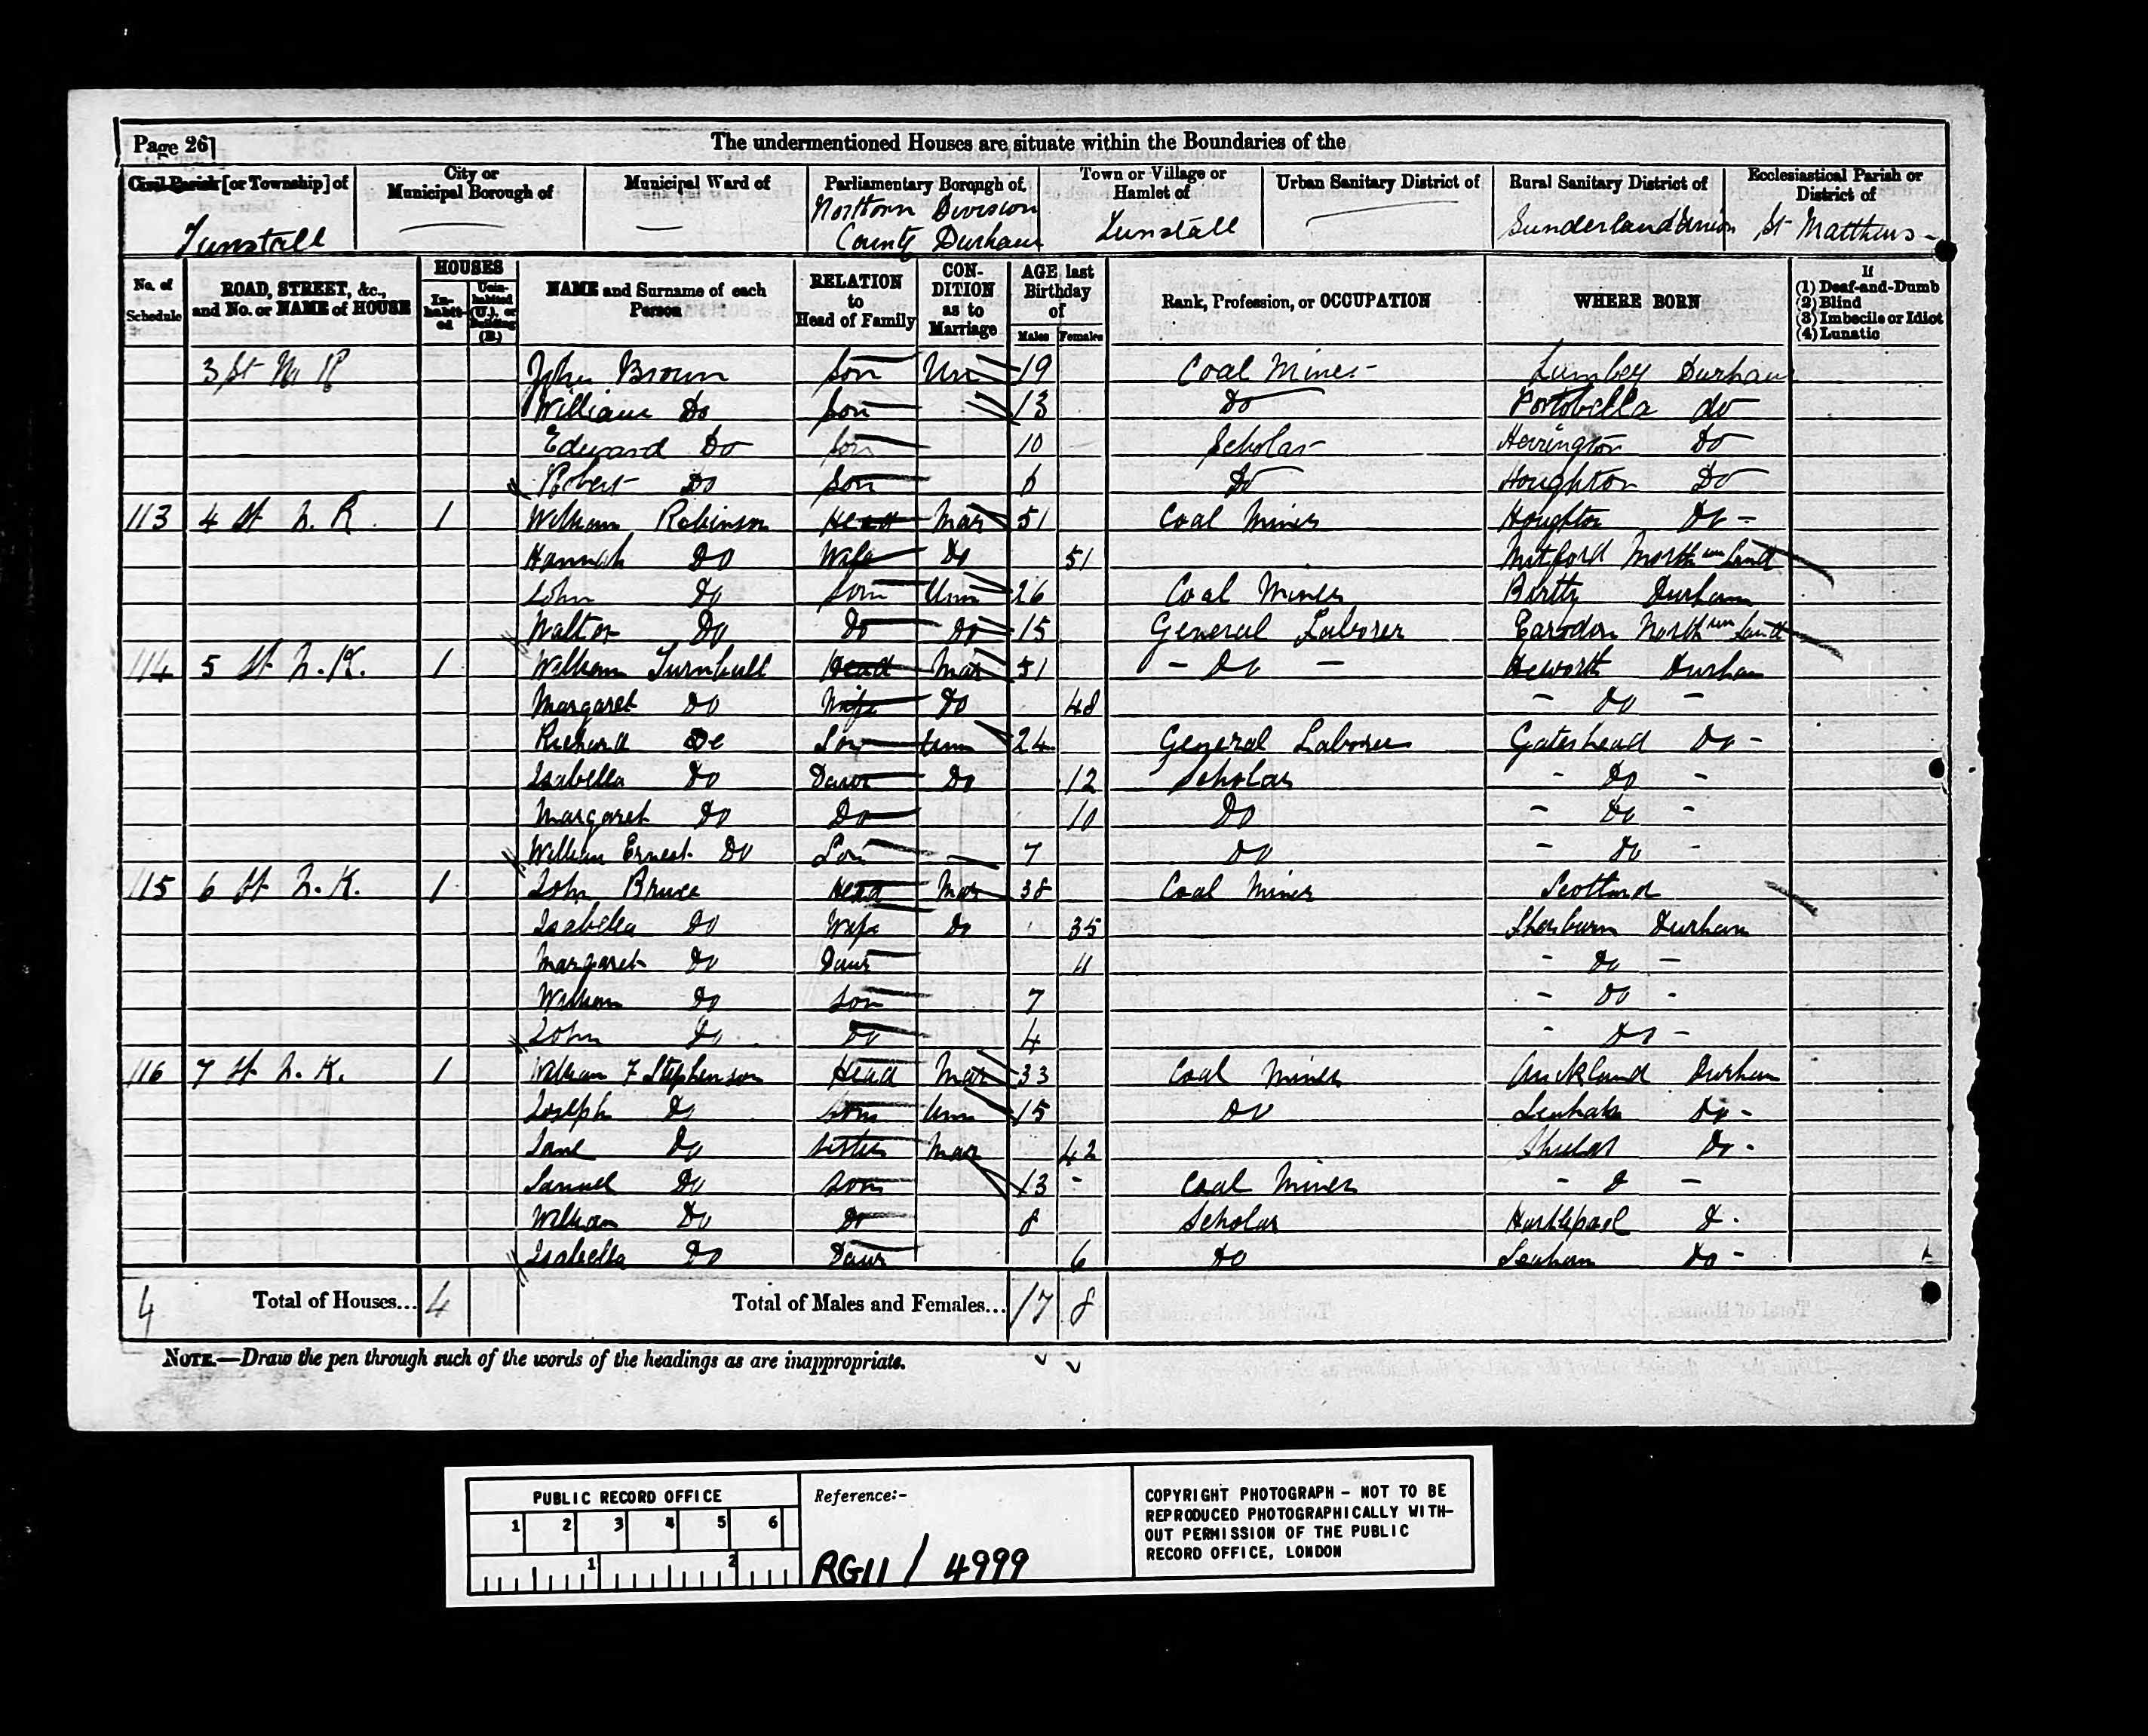 Page 26
The undermentioned Houses are situate within the Boundaries of the
Civil Parish [or Township] of
City or Municipal Borough of
Municipal Ward of
Parliamentary Borough of
Town or Village or Hamlet of
Urban Sanitary District of
Rural Sanitary District of
Ecclesiastical Parish or District of
Tunstall
Northern Division County Durham
Tunstall
Sunderland Union
St Matthews
No. of Schedule
ROAD, STREET, &c., and No. or NAME of HOUSE
HOUSES
In-habit-ed
Unin-habited (U.), or Building (B.)
NAME and Surname of each Person
RELATION to Head of Family
CON-DITION as to Marriage
AGE last Birthday of
Males Females
Rank, Profession, or OCCUPATION
WHERE BORN
If
(1) Deaf-and-Dumb
(2) Blind
(3) Imbecile or Idiot
(4) Lunatic
3 St John Brown Son Un 19 Coal Miner Lumley Durham
William Do Son 13 Do Portobella do
Edward Do Son 10 Scholar Herrington Do
Robert Do Son 6 Do Houghton Do
113 4 St N. R. 1 William Robinson Head Mar 51 Coal Miner Houghton Do
Hannah Do Wife Do 51 Mitford North um land
John Do Son Unm 26 Coal Miner Durham
Walter Do Do Do 15 General Laborer Earsdon North um land
114 5 St N. R. 1 William Turnbull Head Mar 51 Do Heworth Durham
Margaret Do Wife Do 48 Do
Richard Do Son Unm 24 General Laborer Gateshead Do
Isabella Do Daur Do 12 Scholar Do
Margaret Do Do 10 Do Do
William Ernest Do Son 7 Do Do
115 6 St N. R. 1 John Bruce Head Mar 38 Coal Miner Scotland
Isabella Do Wife Do 35 Sherburn Durham
Margaret Do Daur 11 Do
William Do Son 7 Do
John Do Do 4 Do
116 7 St N. R. 1 William F Stephenson Head Mar 33 Coal Miner Auckland Durham
Joseph Do Son Unm 15 Do Do
Jane Do Sister Mar 42 Shields Do
Samuel Do Son 13 Coal Miner Do
William Do Do 8 Scholar Hartlepool Do
Isabella Do Daur 6 Do Seaham Do
4 Total of Houses... 4 Total of Males and Females... 17 8
NOTE.—Draw the pen through such of the words of the headings as are inappropriate.
PUBLIC RECORD OFFICE
1 2 3 4 5 6
1 2
Reference:-
RG11 / 4999
COPYRIGHT PHOTOGRAPH - NOT TO BE
REPRODUCED PHOTOGRAPHICALLY WITH-
OUT PERMISSION OF THE PUBLIC
RECORD OFFICE, LONDON